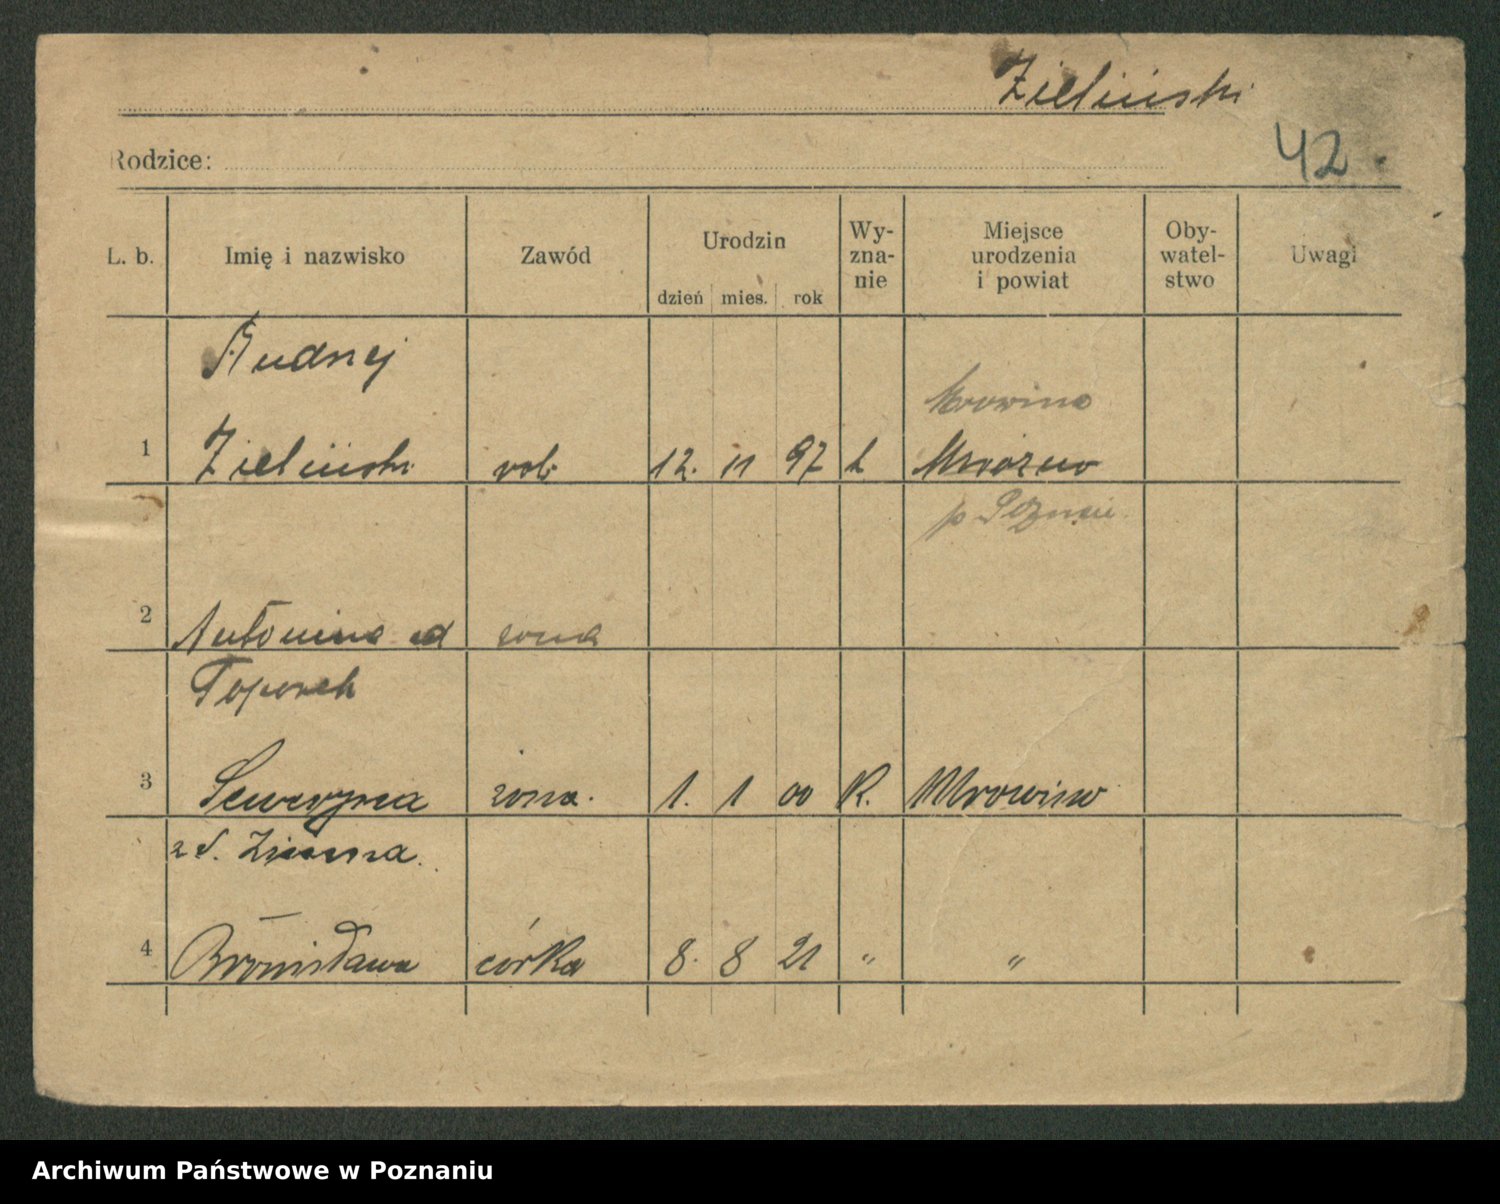 Zieliński
42.
Rodzice:
L. b. Imię i nazwisko Zawód Urodzin dzień mies. rok Wy-zna-nie Miejsce urodzenia i powiat Oby-watel-stwo Uwagi
Mrowino
1 Zieliński rob. 12. 11 97 k
2 Antonina żona
Toporek
3 Seweryna żona. 1. 1 00 K. Mrowino
z d.
4 Bronisława córka 8. 8 21 " "
Archiwum Państwowe w Poznaniu